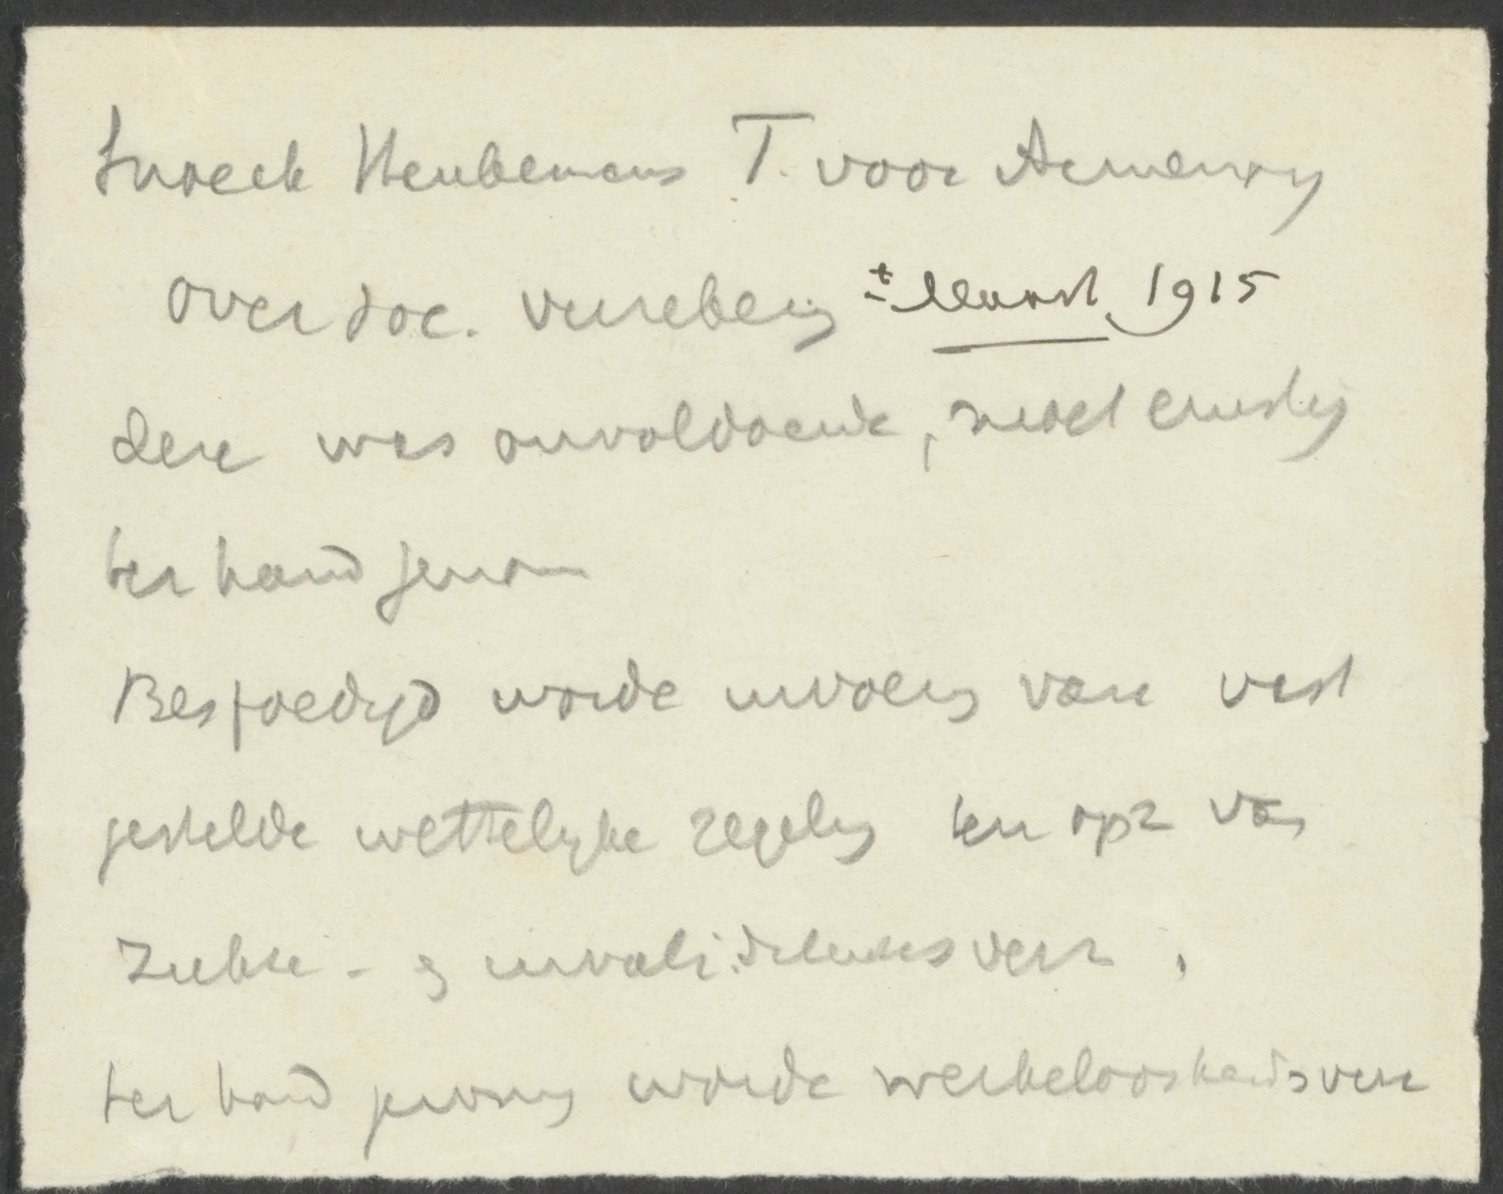 Heubemans T. voor
over soc. verzekering ± Maart 1915
deze was onvoldoende, moet ernstig
ter hand genom
Bespoedigd worde invoering van vast
gestelde wettelijke regeling ten opz van
Ziekte - en invaliditeitsverz ,
ter hand genomen worde werkeloosheidsverz